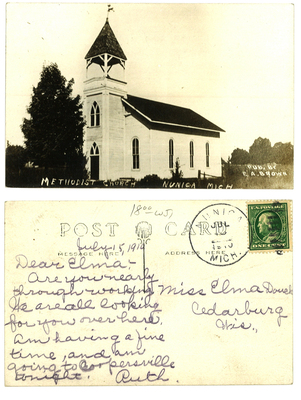 PUB. BY
E.A. BROWN
METHODIST CHURCH NUNICA MICH
POST CARD
MESSAGE HERE
ADDRESS HERE
NUNICA
JUL
MICH.
July 15, 191
Dear Elma,-
Are you nearly
through working
We are all looking
for you over here.
Am having a fine
time, and am
going to Coopersville
tonight. Ruth.
Miss Elma
Cedarburg
Wis.,